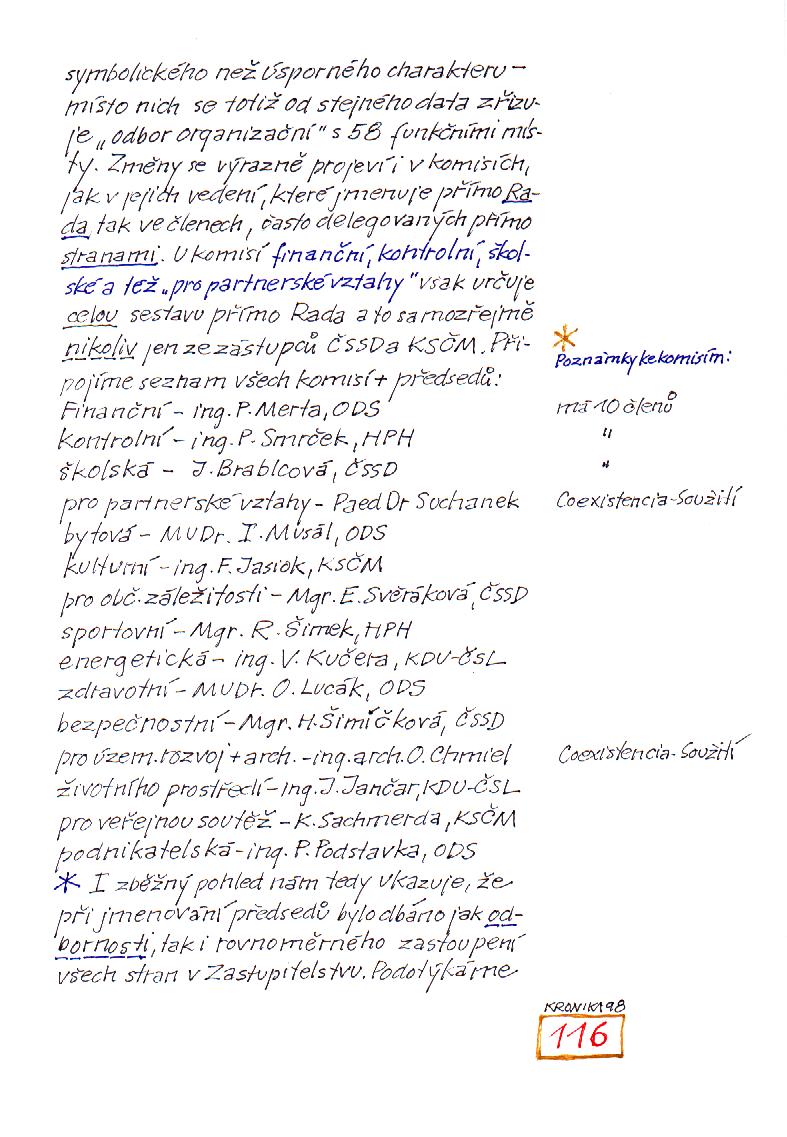 symbolického než úsporného charakteru –
místo nich se totiž od stejného data zřizu-
je „odbor organizační" s 58 funkčními mís-
ty. Změny se výrazně projeví i v komisích,
jak v jejich vedení, které jmenuje přímo Ra-
da, tak ve členech, často delegovaných přímo
stranami. U komisí finanční, kontrolní, škol-
ské a též „pro partnerské vztahy" však určuje
celou sestavu přímo Rada a to samozřejmě
nikoliv jen ze zástupců ČSSD a KSČM. Při-
pojíme seznam všech komisí + předsedů:
Finanční – ing. P. Merta, ODS
kontrolní – ing. P. Smrček, HPH
školská – J. Brablcová, ČSSD
pro partnerské vztahy – Paed Dr Suchanek
bytová – MUDr. I. Musál, ODS
kulturní – ing. F. Jasiok, KSČM
pro obč. záležitosti – Mgr. E. Svěráková, ČSSD
sportovní – Mgr. R. Šimek, HPH
energetická – ing. V. Kučera, KDU-ČSL
zdravotní – MUDr. O. Lucák, ODS
bezpečnostní – Mgr. H. Šimíčková, ČSSD
pro územ. rozvoj + arch. – ing. arch. O. Chmiel
životního prostředí – ing. J. Jančar, KDU-ČSL
pro veřejnou soutěž – K. Sachmerda, KSČM
podnikatelská – ing. P. Podstavka, ODS
* I zběžný pohled nám tedy ukazuje, že
při jmenování předsedů bylo dbáno jak od-
bornosti, tak i rovnoměrného zastoupení
všech stran v Zastupitelstvu. Podotýkáme
*
Poznámky ke komisím:
má 10 členů
"
"
Coexistencia-Soužití
Coexistencia-Soužití
KRONIKA 98
116